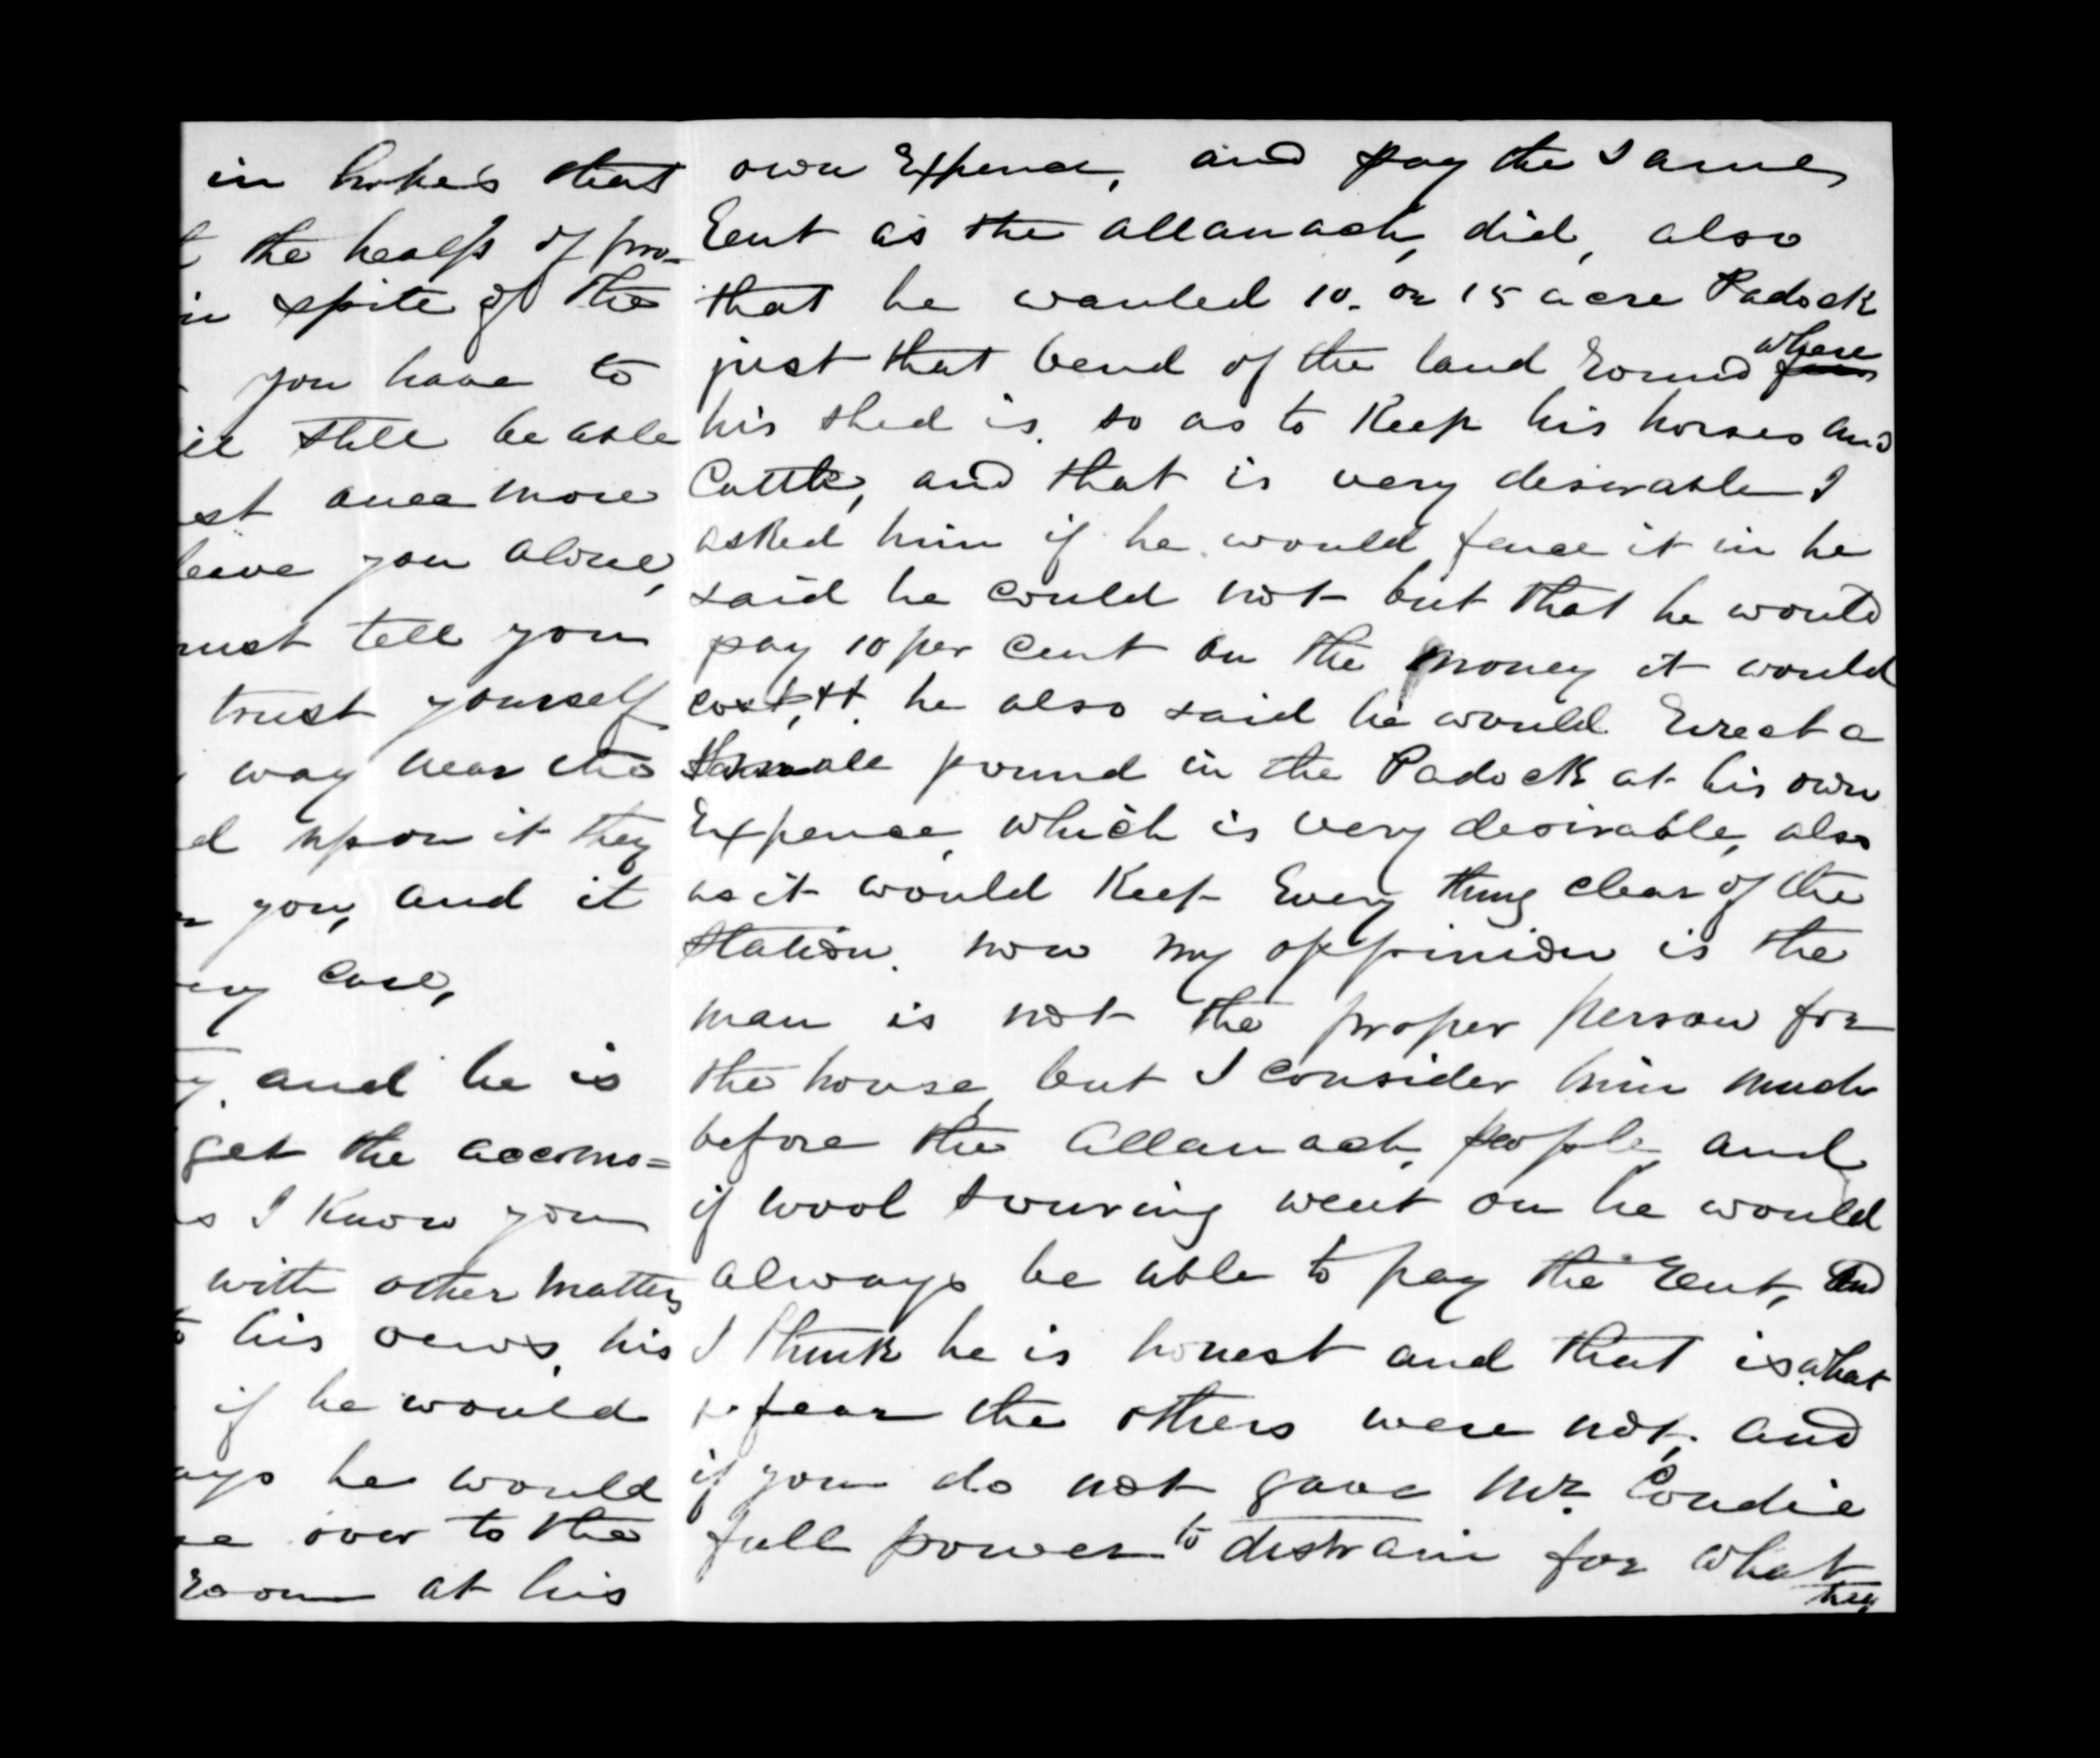 in hopes that
t the heaps of pro-
in spite of the
you have to
ill still be able
st once more
leave you alone,
must tell you
trust yourself
way near the
d upon it they
you, and it
ery case,
and he is
get the accomo=
s I know you
with other matters
his views, his
if he would
ays he would
over to the
room at his
own Expence, and pay the same
Rent as the Allanach, did, also
that he wanted 10. or 15 acre Padock
just that bend of the land Round where
his shed is. so as to Keep his horses and
Cattle, and that is very desirable I
asked him if he would fence it in he
said he could not but that he would
pay 10 per cent on the money it would
cost, he also said he would Erect a
small pound in the Padock at his own
Expence, which is very desirable, also
as it would Keep Every thing clear of the
Station. now my oppinion is the
man is not the proper person for
the house, but I consider him much
before the Allanach, people, and
if wool scouring went on he would
always be able to pay the Rent, and
I think he is honest and that is what
fear the others were not, and
if you do not gave Mr. Condie
full power to distrain for what
they